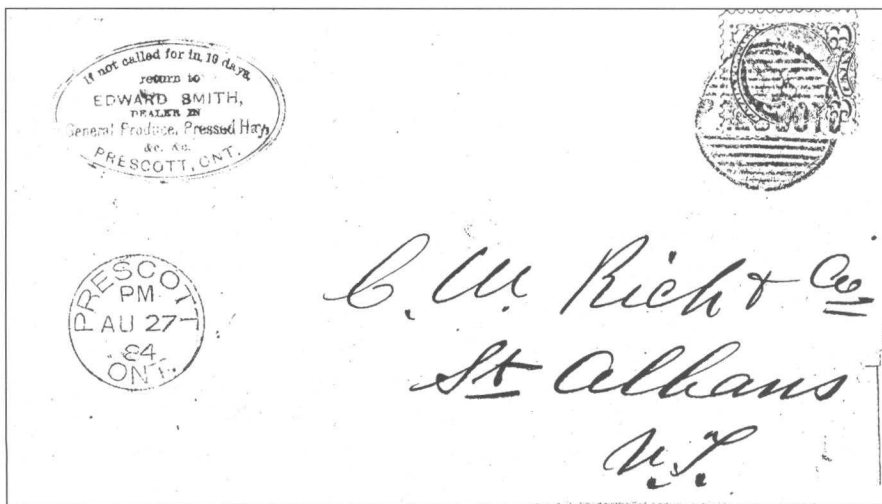 If not called for in 10 days,
return to
EDWARD SMITH,
DEALER IN
General Produce, Pressed Hay,
&c. &c.
PRESCOTT, ONT.
PRESCOTT
PM
AU 27
84
ONT.
C. W. Rich & Co.
St Albans